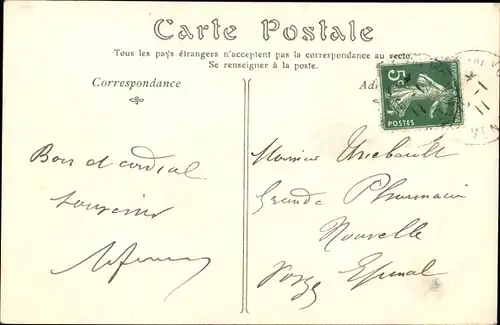 Carte Postale
Tous les pays étrangers n'acceptent pas la correspondance au recto.
Se renseigner à la poste.
Correspondance
Bon et cordial
souvenir
5c
POSTES
11
VEN
Monsieur Thiébault
Grande Pharmacie
Nouvelle
Epinal